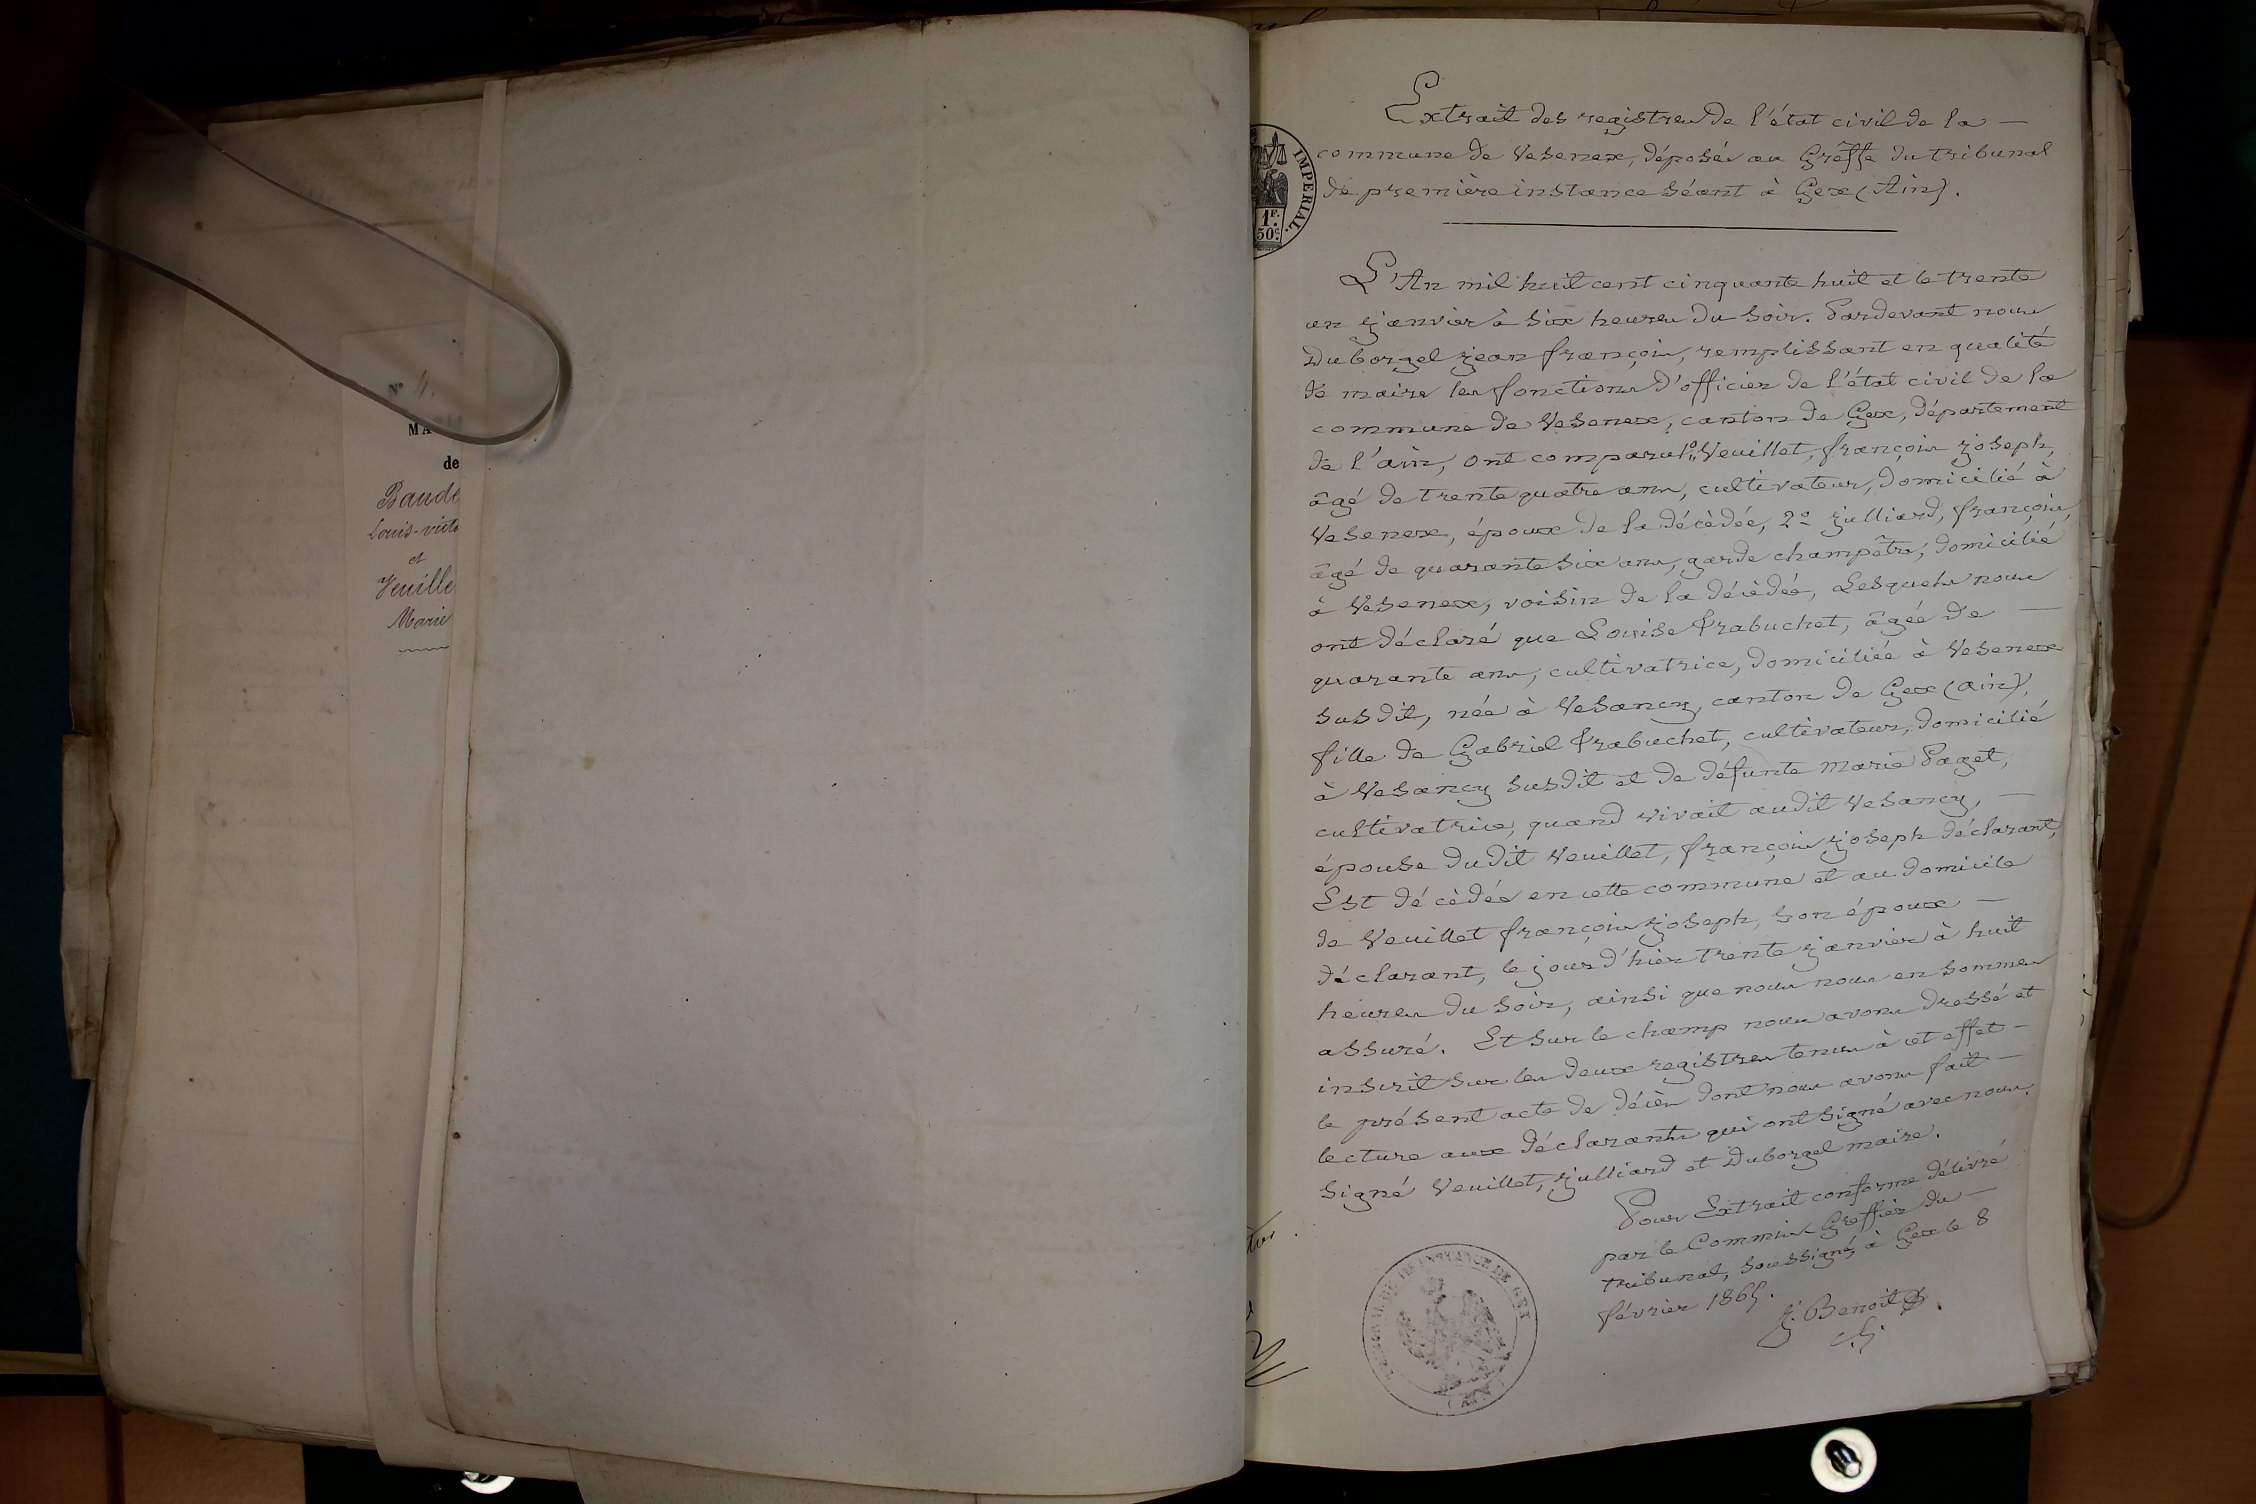 N° 4.
MA
de
Baude
Louis-victo
et
Veuille
Marie
IMPERIAL.
1F.
50c.
Extrait des registres de l'état civil de la —
commune de Vesenex, déposés au Greffe du tribunal
de première instance séant à Gex (Ain).
L'An mil huit cent cinquante huit et le trente
un janvier à six heures du soir. Pardevant nous
Duborgel jean françois, remplissant en qualité
de maire les fonctions d'officier de l'état civil de la
commune de Vesenex, canton de Gex, département
de l'ain, ont comparu 1° Veuillet, françois joseph,
âgé de trente quatre ans, cultivateur, domicilié à
Vesenex, époux de la décédée, 2° julliard, françois,
âgé de quarante six ans, garde champêtre, domicilié
à Vesenex, voisin de la décédée, Lesquels nous
ont déclaré que Louise Trabuchet, âgée de —
quarante ans, cultivatrice, domiciliée à Vesenex
susdit, née à Vesancy, canton de Gex (ain),
fille de Gabriel Trabuchet, cultivateur, domicilié
à Vesancy susdit et de défunte Marie Paget,
cultivatrice, quand vivait audit Vesancy, —
épouse dudit Veuillet, françois joseph déclarant,
Est décédée en cette commune et au domicile
de Veuillet françois joseph, son époux —
déclarant, le jour d'hier trente janvier à huit
heures du soir, ainsi que nous nous en sommes
assuré. Et sur le champ nous avons dressé et
inscrit sur les deux registres tenus à cet effet —
le présent acte de décès dont nous avons fait —
lecture aux déclarants qui ont signé avec nous.
Signé Veuillet, julliard et Duborgel maire.
Pour Extrait conforme délivré
par le Commis Greffier du —
tribunal, soussigné, à Gex le 8
février 1865.
j. Benoit
TRIBUNAL DE 1RE INSTANCE DE GEX
(AIN)